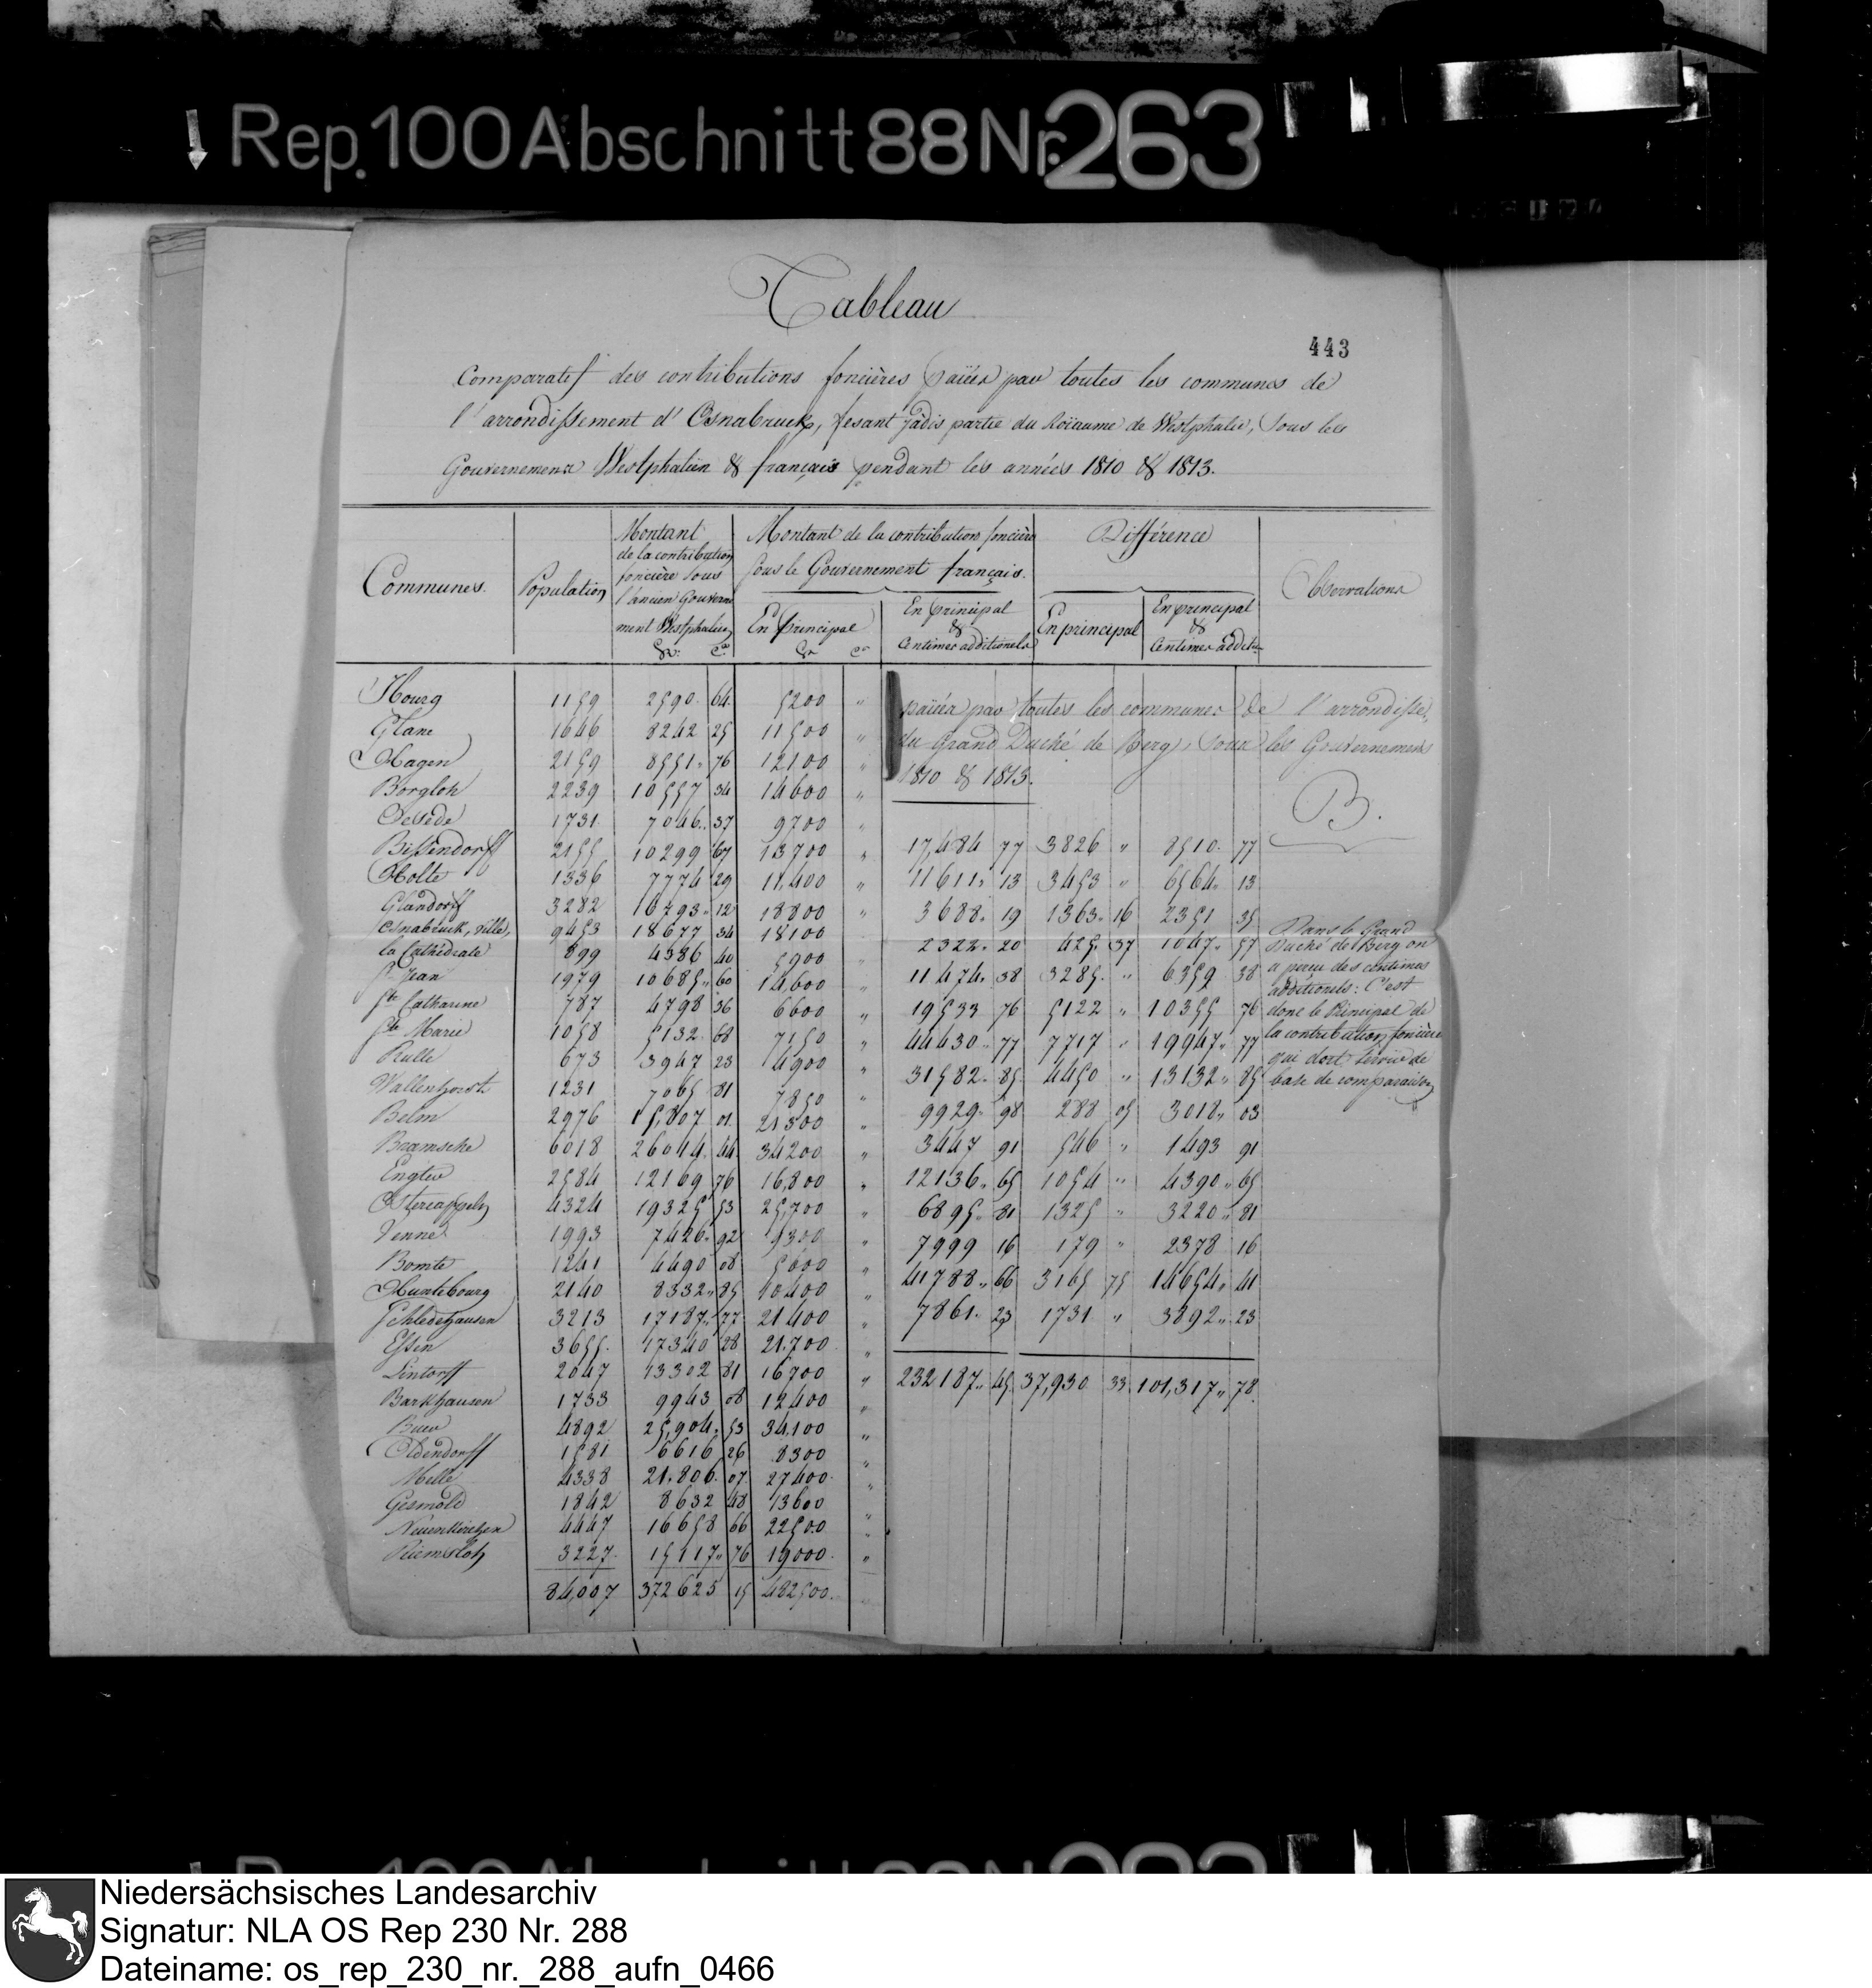 Rep. 100 Abschnitt 88 Nr. 263
Tableau
443
Comparatif des contributions foncières païées par toutes les communes de
l'arrondissement d'Osnabruck, fesant jadis partie du Roïaume de Westphalie, sous les
Gouvernemens Westphalien & français pendant les années 1810 & 1813.
Communes.
Population
Montant
de la contribution
foncière sous
l'ancien Gouverne
ment Westphalien
Montant de la contribution foncière
sous le Gouvernement français.
En principal
En principal
&
Centimes additionels
Différence
En principal
En principal
&
Centimes additi
Observations
Ibourg 1159 2590 64 5200 "
Glane 1646 8242 25 11500 "
Hagen 2159 8551 76 12100 "
Borgloh 2239 10557 34 14600 "
Oesede 1731 7046 37 9700 "
Bissendorff 2155 10299 67 13700 "
Holte 1336 7774 29 11,400 "
Glandorff 3282 10793 12 18800 "
Osnabruck, ville, 9453 18677 34 18100
la Cathédrale 899 4386 40 5900 "
St Jean 1979 10685 60 14,600 "
Ste Catharine 787 4798 36 6600 "
Ste Marie 1058 5132 68 7150 "
Rulle 673 3947 23 4900 "
Wallenhorst 1231 7065 81 7850 "
Belm 2976 15,807 01 21300 "
Bramsche 6018 26044 44 34200 "
Engter 2584 12169 76 16,800 "
Ostercappeln 4324 19325 53 25,700 "
Venne 1993 7426 92 9300 "
Bomte 1241 4490 08 5600 "
Huntebourg 2140 8332 85 10400 "
Schledehausen 3213 17187 77 21400 "
Essen 3655 17340 28 21,700 "
Lintorff 2047 13302 81 16700 "
Barkhausen 1733 9943 08 12400 "
Buer 4892 25,904 53 34,100 "
Oldendorff 1581 6616 26 8300 "
Melle 4338 21,806 07 27400 "
Gesmold 1842 8632 48 13600 "
Neuenkirchen 4447 16658 66 22500 "
Riemsloh 3227 15117 76 19000 "
84,007 372625 15 482500
païées par toutes les communes de l'arrondisse
du Grand Duché de Berg, sous les Gouvernemens
1810 & 1813.
B.
17,484 77 3826 " 8510 77
11611 13 3453 " 6564 13
3688 19 1363 16 2351 35
2322 20 425 37 1047 57
11474 38 3285 " 6359 38
19533 76 5122 " 10355 76
44430 77 7717 " 19947 77
31582 85 4450 " 13132 85
9929 98 288 05 3018 03
3447 91 546 " 1493 91
12136 65 1054 " 4390 65
6895 81 1325 " 3220 81
7999 16 179 " 2378 16
41788 66 3165 75 14654 41
7861 23 1731 " 3892 23
232187 45 37,930 33 101,317 78
Dans le Grand
Duché de Berg on
a perçu des centimes
additionels: C'est
donc le Principal de
la contribution foncière
qui doit servir de
base de comparaison
Niedersächsisches Landesarchiv
Signatur: NLA OS Rep 230 Nr. 288
Dateiname: os_rep_230_nr._288_aufn_0466